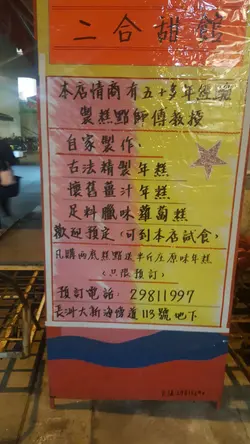 二合甜館
本店情商有五十多年經驗
製糕點師傅教授
自家製作,
古法精製年糕
懷舊薑汁年糕
足料臘味蘿蔔糕
歡迎預定(可到本店試食)
凡購兩底糕點送半斤庄原味年糕
(只限預訂)
預訂電話: 29811997
長洲大新海傍道113號地下